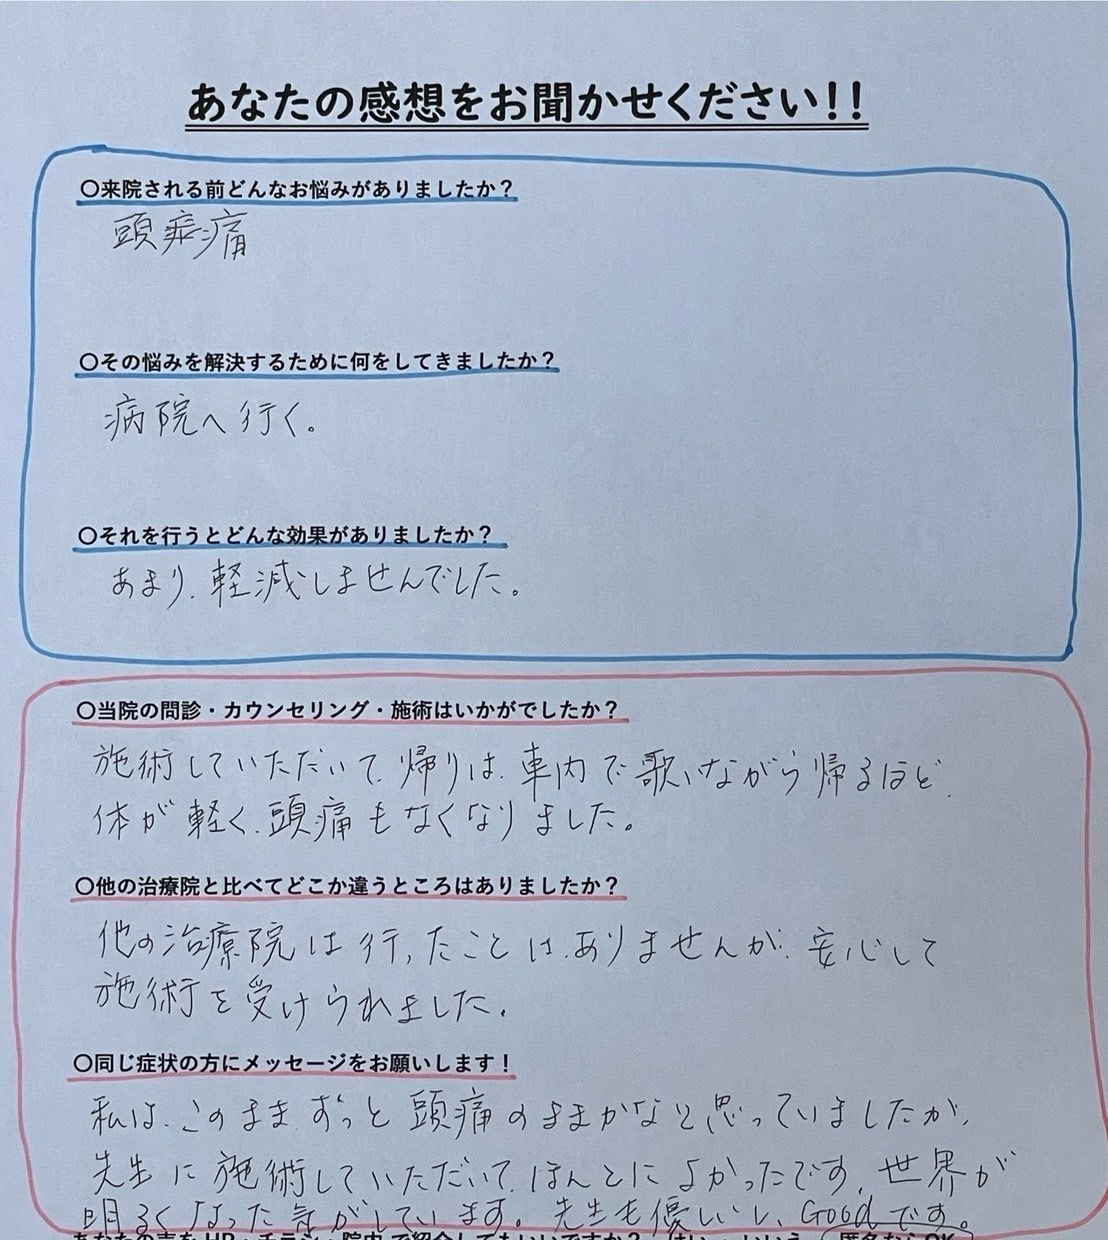 あなたの感想をお聞かせください!!
〇来院される前どんなお悩みがありましたか？
頭痛
〇その悩みを解決するために何をしてきましたか？
病院へ行く。
〇それを行うとどんな効果がありましたか？
あまり、軽減しませんでした。
〇当院の問診・カウンセリング・施術はいかがでしたか？
施術していただいて、帰りは、車内で歌いながら帰るほど、
体が軽く、頭痛もなくなりました。
〇他の治療院と比べてどこか違うところはありましたか？
他の治療院は行ったことは、ありませんが、安心して
施術を受けられました。
〇同じ症状の方にメッセージをお願いします！
私は、このままずっと頭痛のままかなと思っていましたが、
先生に施術していただいて、ほんとによかったです。世界が
明るくなった気がしています。先生も優しいし、Goodです。
あなたの声をHP・チラシ・院内で紹介してもいいですか？ はい・いいえ（匿名ならOK